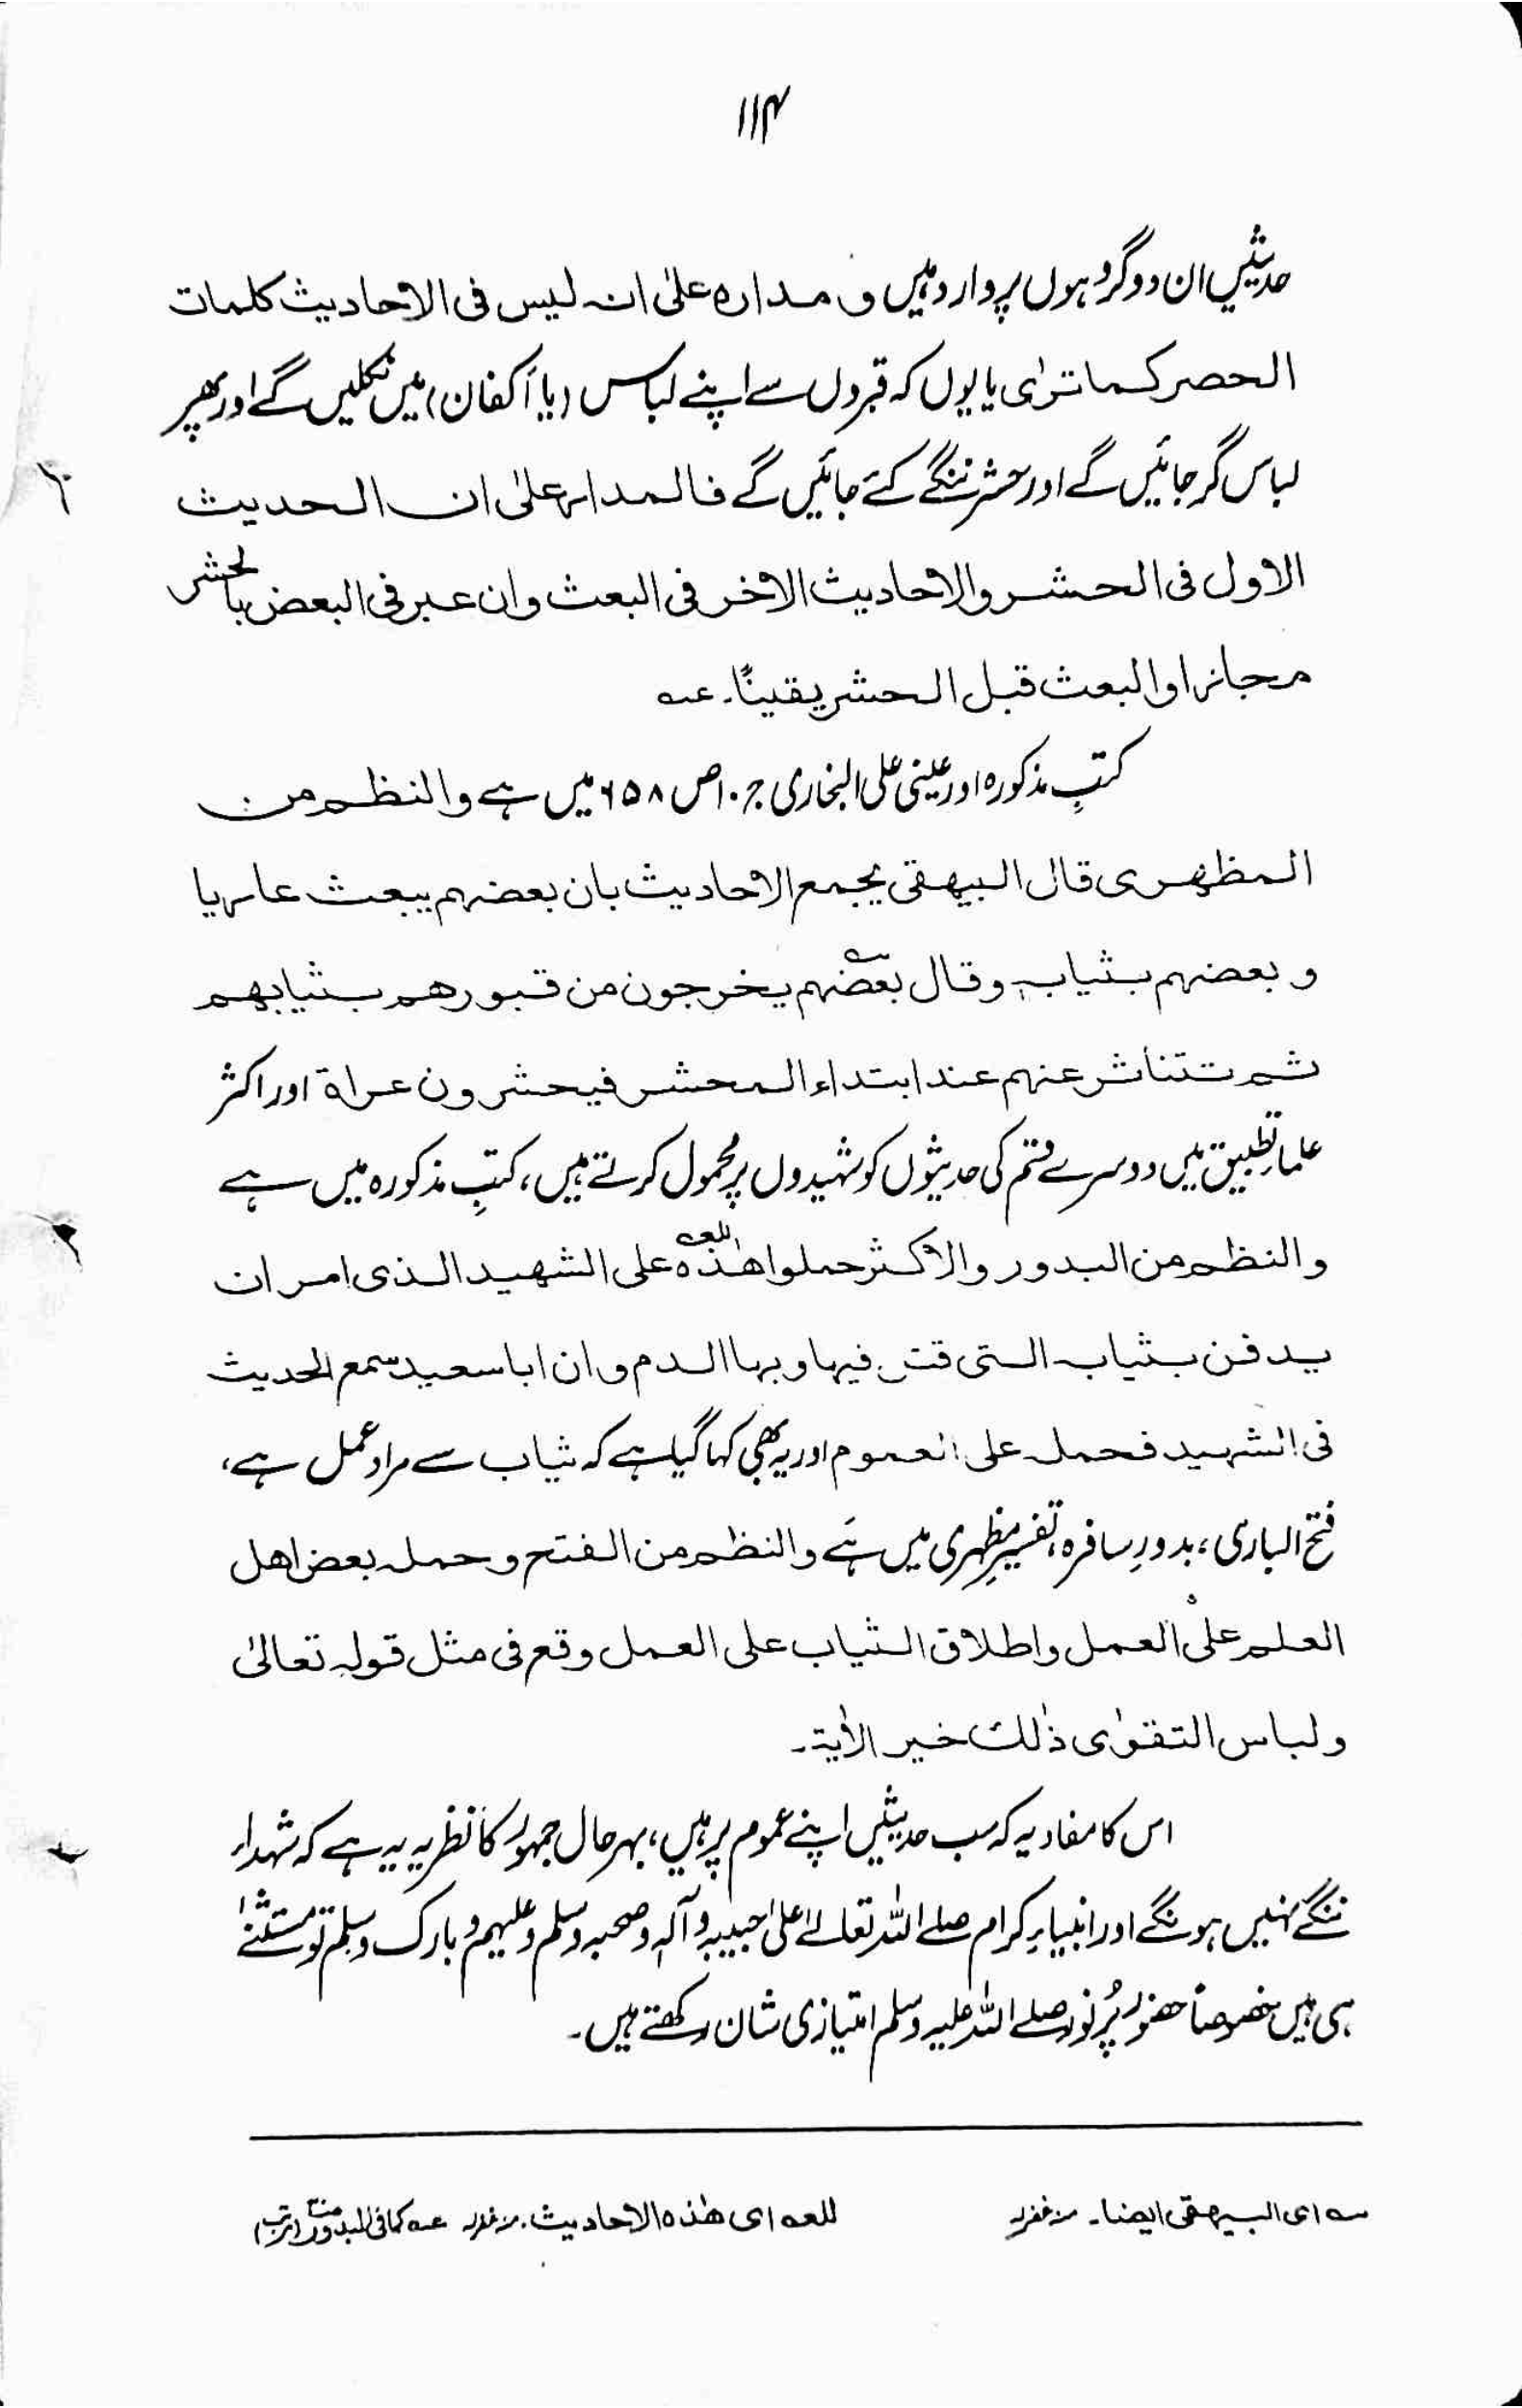 ۱۱۴
حدیثیں ان دو گروہوں پر وارد ہیں و مدارہ علیٰ انہ لیس فی الاحادیث کلمات
الحصر کما ترٰی یا یوں کہ قبروں سے اپنے لباس (یا اَکفان) میں نکلیں گے اور پھر
لباس گر جائیں گے اور حشر ننگے کئے جائیں گے فالمدار علیٰ ان الحدیث
الاول فی الحشر والاحادیث الاخر فی البعث وان عبر فی البعض بالحشر
مجازا والبعث قبل الحشر یقینًا۔ عہ
کتبِ مذکورہ اور عینی علی البخاری ج ۱۰ ص ۶۵۸ میں ہے والنظم من
المظہری قال البیہقی یجمع الاحادیث بان بعضہم یبعث عاریا
و بعضہم بثیابہ وقال بعضہم یخرجون من قبورھم بثیابھم
ثم تتناثر عنہم عند ابتداء المحشر فیحشرون عراۃ اور اکثر
علماءِ تطبیق میں دوسرے قسم کی حدیثوں کو شہیدوں پر محمول کرتے ہیں، کتبِ مذکورہ میں ہے
والنظم من البدور والاکثر حملوا ھٰذہ للعہ علی الشھید الذی امر ان
یدفن بثیابہ التی قتل فیہا وبہا الدم وان ابا سعید سمع الحدیث
فی الشہید فحملہ علی العموم اور یہ بھی کہا گیا ہے کہ ثیاب سے مراد عمل ہے،
فتح الباری، بدورِ سافرہ، تفسیرِ مظہری میں ہَے والنظم من الفتح وحملہ بعض اھل
العلم علی العمل واطلاق الثیاب علی العمل وقع فی مثل قولہ تعالیٰ
ولباس التقوٰی ذٰلک خیر الاٰیۃ۔
اس کا مفاد یہ کہ سب حدیثیں اپنے عموم پر ہیں، بہر حال جمہور کا نظریہ یہ ہے کہ شہداء
ننگے نہیں ہونگے اور انبیاءِ کرام صلے اللہ تعالےٰ علیٰ حبیبہ و آلہ وصحبہ وسلم وعلیہم وبارک وسلم تو مستثنےٰ
ہی ہیں خصوصاً حضور پُر نور صلے اللہ علیہ وسلم امتیازی شان رکھتے ہیں۔
سہ ای البیہقی ایضا۔ منہ غفرلہ للعہ ای ھٰذہ الاحادیث۔ منہ غفرلہ عہ کما فی البدور